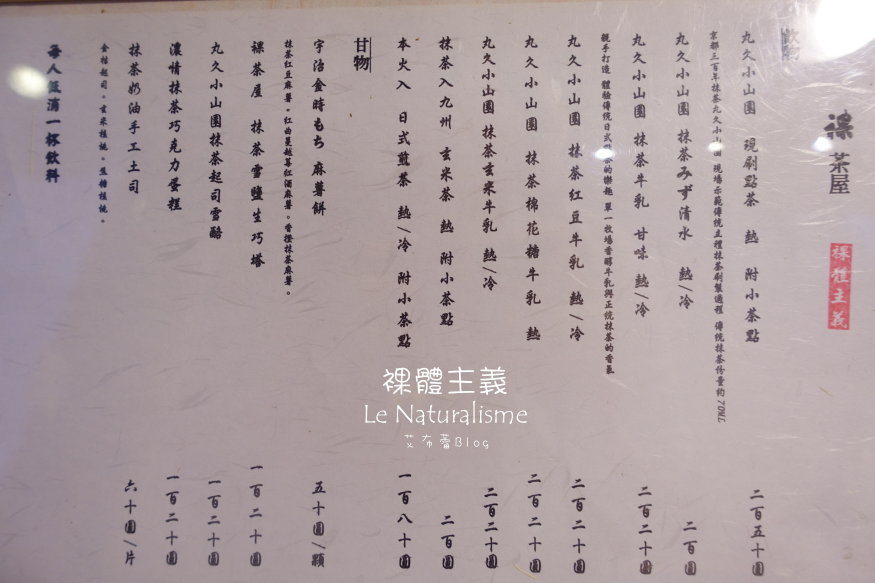 裸茶屋
裸體主義
飲物
丸久小山園 現刷點茶 熱 附小茶點 二百五十圓
京都三百年抹茶丸久小山園 現場示範傳統立禮抹茶刷製過程 傳統抹茶份量約70ML
丸久小山園 抹茶みず清水 熱/冷 二百圓
丸久小山園 抹茶牛乳 甘味 熱/冷 二百二十圓
親手打造 體驗傳統日式刷茶的樂趣 單一牧場香醇牛乳與正統抹茶的香氣
丸久小山園 抹茶紅豆牛乳 熱/冷 二百二十圓
丸久小山園 抹茶棉花糖牛乳 熱 二百二十圓
丸久小山園 抹茶玄米牛乳 熱/冷 二百二十圓
抹茶入九州 玄米茶 熱 附小茶點 二百圓
本火入 日式煎茶 熱/冷 附小茶點 一百八十圓
甘物
宇治金時もち 麻薯餅 五十圓/顆
抹茶紅豆麻薯。紅曲蔓越莓紅酒麻薯。香橙抹茶麻薯。
裸茶屋 抹茶雪鹽生巧塔 一百二十圓
丸久小山園抹茶起司雪酪 一百二十圓
濃情抹茶巧克力蛋糕 一百二十圓
抹茶奶油手工土司 六十圓/片
金桔起司。玄米核桃。黑糖核桃。
每人低消一杯飲料
裸體主義
Le Naturalisme
艾布蕾Blog